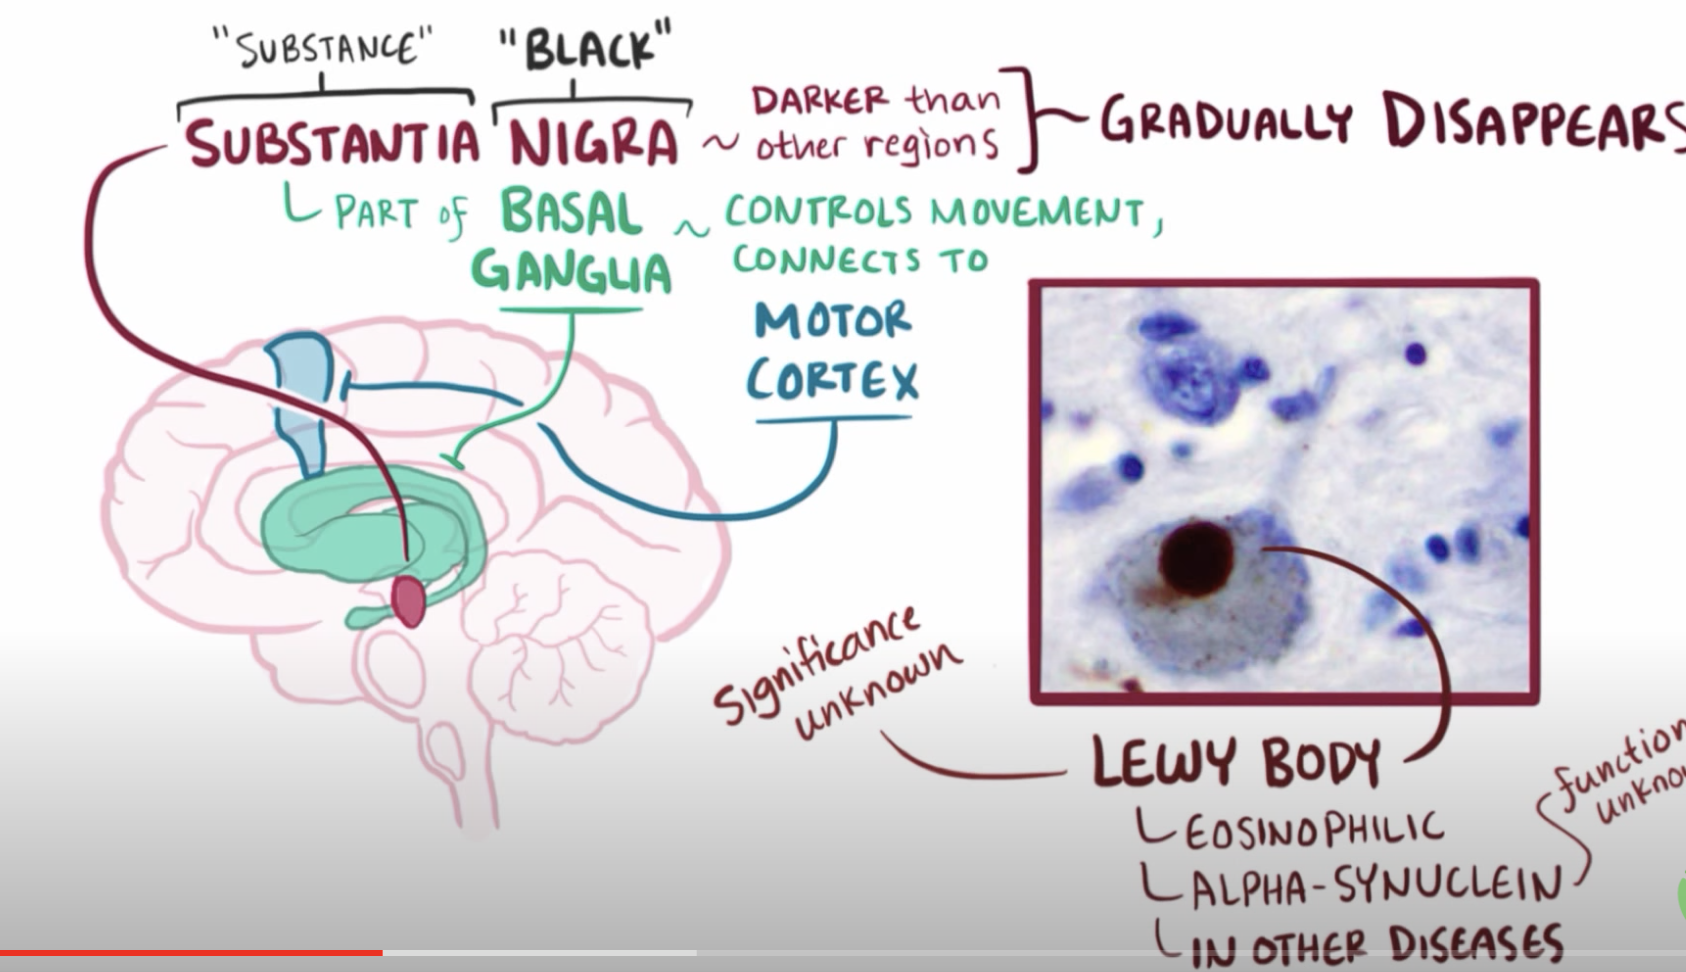 "SUBSTANCE" "BLACK"
SUBSTANTIA NIGRA ~ DARKER than
other regions
GRADUALLY DISAPPEARS
PART OF BASAL
GANGLIA
~ CONTROLS MOVEMENT,
CONNECTS TO
MOTOR
CORTEX
Significance
unknown
LEWY BODY
EOSINOPHILIC
ALPHA-SYNUCLEIN
IN OTHER DISEASES
function